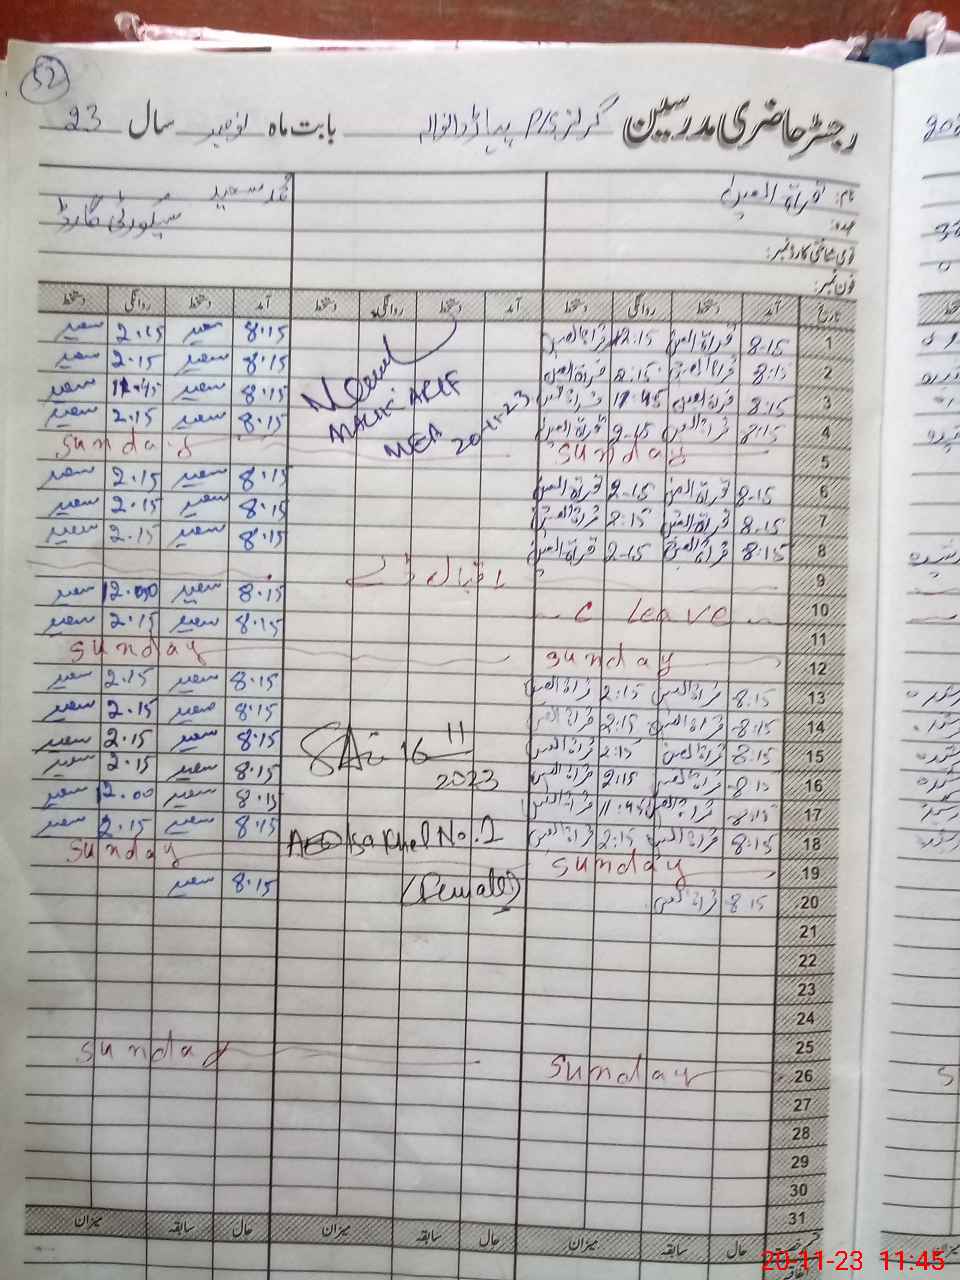 52
رجسٹر حاضری مدرسین گرلز P/S بابت ماہ نومبر سال 23
نام: قراۃ العین محمد سعید
عہدہ: سیکورٹی گارڈ
قومی شناختی کارڈ نمبر:
فون نمبر:
تاریخ آمد دستخط روانگی دستخط آمد دستخط روانگی دستخط آمد دستخط روانگی دستخط
1 8-15 قراۃ العین 12.15 قراۃ العین 8.15 سعید 2.15 سعید
2 8:15 قراۃ العین 2:15 قراۃ العین 8.15 سعید 2.15 سعید
3 8:15 قراۃ العین 11:45 قراۃ العین 8.15 سعید 11.45 سعید
4 8:15 قراۃ العین 2-15 قراۃ العین 8.15 سعید 2.15 سعید
MALIK ARIF
MEA 20-11-23
5 Sunday Sunday
6 8-15 قراۃ العین 2-15 قراۃ العین 8.15 سعید 2.15 سعید
7 8.15 قراۃ العین 2:15 قراۃ العین 8.15 سعید 2.15 سعید
8 8:15 قراۃ العین 2-15 قراۃ العین 8.15 سعید 2.15 سعید
9 اقبال ڈے
10 C Leave 8.15 سعید 12.00 سعید
11 8.15 سعید 2.15 سعید
12 Sunday Sunday
13 8.15 قراۃ العین 2:15 قراۃ العین 8.15 سعید 2.15 سعید
14 8:15 قراۃ العین 2:15 قراۃ العین 8.15 سعید 2.15 سعید
15 8:15 قراۃ العین 2:15 قراۃ العین 8.15 سعید 2.15 سعید
16 8:15 قراۃ العین 2:15 قراۃ العین 8.15 سعید 2.15 سعید
16 11
2023
17 8:15 قراۃ العین 11:45 قراۃ العین 8.15 سعید 12.00 سعید
18 8:15 قراۃ العین 2:15 قراۃ العین 8.15 سعید 2.15 سعید
Isa Khel No.1
(Female)
19 Sunday Sunday
20 8.15 قراۃ العین 8.15 سعید
21
22
23
24
25
26 Sunday Sunday
27
28
29
30
31
حال سابقہ میزان حال سابقہ میزان حال سابقہ میزان
20-11-23 11:45